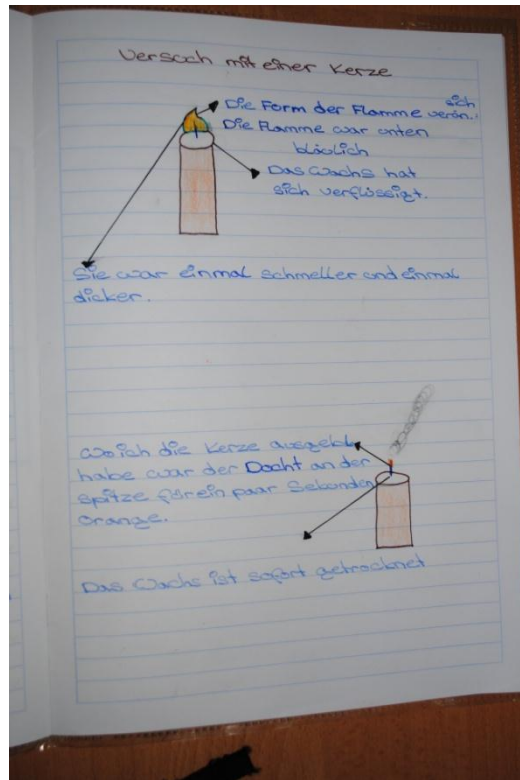 Versuch mit einer Kerze
Die Form der Flamme verän. sich
Die Flamme war unten
bläulich
Das Wachs hat
sich verflüssigt.
Sie war einmal schmeller und einmal
dicker.
Wo ich die Kerze ausgebl.
habe war der Docht an der
spitze für ein paar Sekunden
orange.
Das Wachs ist sofort getrocknet